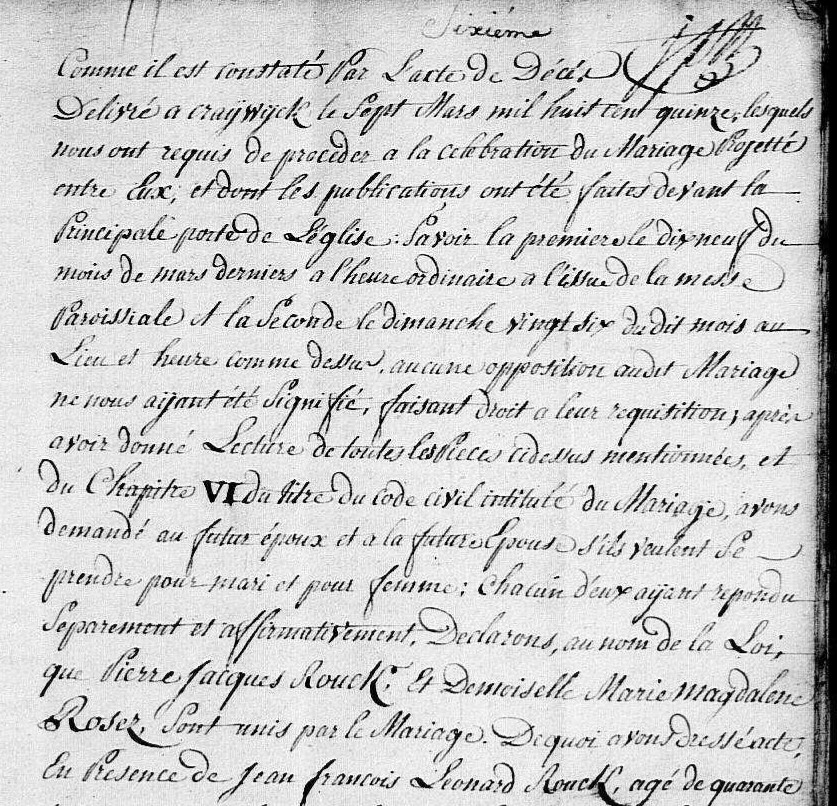 Sixiéme
Comme il est constaté Par L'acte de Décés
Delivré a craÿwÿck le Sept Mars mil huit cent quinze, lesquels
nous ont requis de proceder a la celebration du Mariage Projetté
entre Eux, et dont les publications ont été faites devant la
Principale porte de L'église : Savoir la premiere le dix neuf du
mois de mars derniers a l'heure ordinaire a l'issue de la messe
Paroissiale et la Seconde le dimanche vingt six du dit mois au
Lieu et heure comme dessus, aucune opposition audit Mariage
ne nous aÿant été Signifié, faisant droit a leur requisition, aprés
avoir donné Lecture de toutes les Pieces cidessus mentionnées, et
du Chapitre VI du titre du Code civil intitulé du Mariage, avons
demandé au futur époux et a la future Epouse s'ils veulent Se
prendre pour mari et pour femme ; Chacun d'eux aÿant repondu
Separement et affirmativement, Declarons, au nom de la Loi,
que Pierre Jacques Rouck, Et Demoiselle Marie magdalene
Rosez, Sont unis par le Mariage. De quoi avons dressé acte,
En Presence de Jean françois Leonard Rouck, agé de quarante